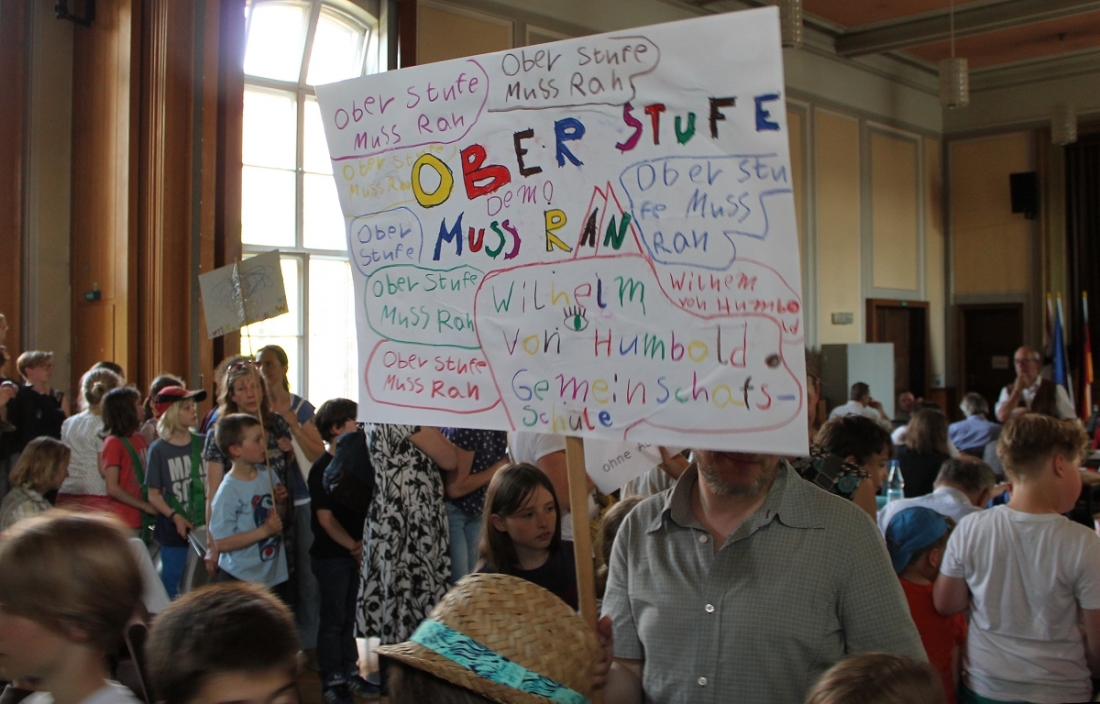 Ober Stufe
Muss Ran
Ober Stufe
Muss Rah
Ober Stufe
Muss Ran
OBER STUFE
Demo
MUSS RAN
Ober Stu
fe Muss
Ran
Ober
Stufe
Ober Stufe
Muss Rah
Ober Stufe
Muss Ran
Wilhelm
von Humbold
Gemeinschafs-
Schule
Wilhem
von Humbo
ld
ohne